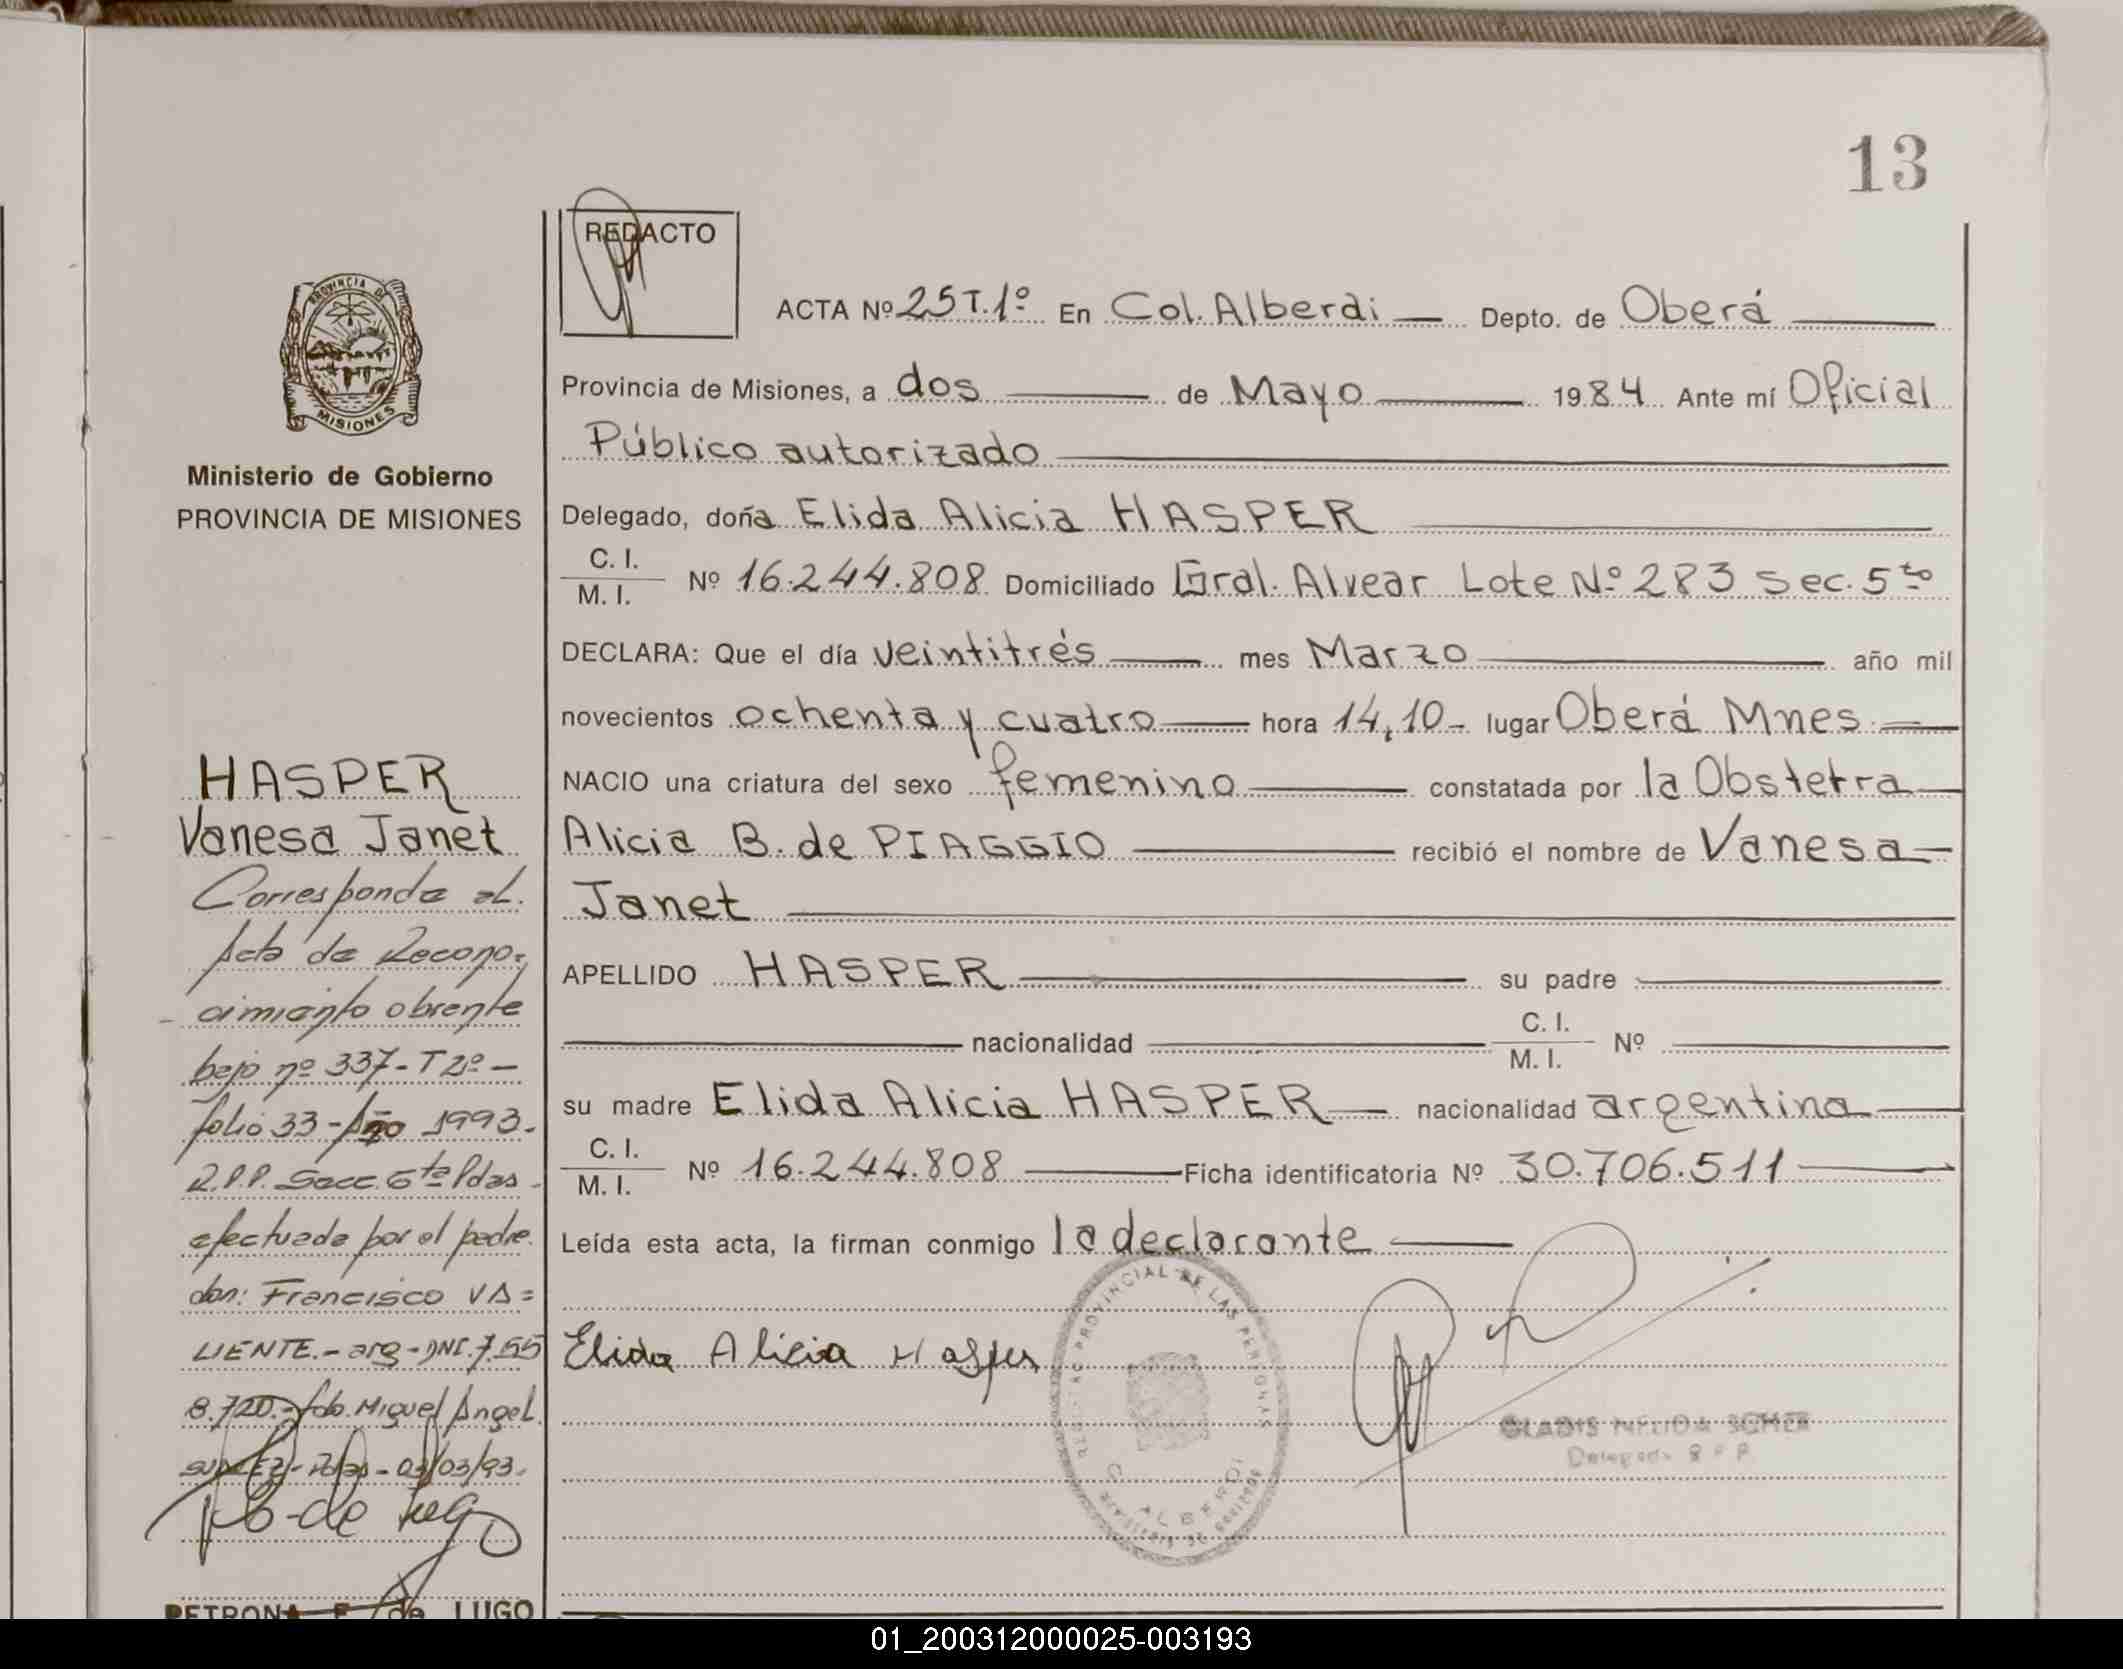 13
REDACTO
PROVINCIA DE
MISIONES
Ministerio de Gobierno
PROVINCIA DE MISIONES
ACTA Nº 25 T. 1º En Col. Alberdi Depto. de Oberá
Provincia de Misiones, a dos de Mayo 1984 Ante mí Oficial
Público autorizado
Delegado, doña Elida Alicia HASPER
C. I.
M. I. Nº 16.244.808 Domiciliado Gral. Alvear Lote Nº 283 Sec. 5to
DECLARA: Que el día veintitrés mes Marzo año mil
novecientos ochenta y cuatro hora 14,10 - lugar Oberá Mnes.
NACIO una criatura del sexo femenino constatada por la Obstetra
Alicia B. de PIAGGIO recibió el nombre de Vanesa
Janet
APELLIDO HASPER su padre
nacionalidad C. I.
M. I. Nº
su madre Elida Alicia HASPER nacionalidad argentina
C. I.
M. I. Nº 16.244.808 Ficha identificatoria Nº 30.706.511
Leída esta acta, la firman conmigo la declarante
Elida Alicia Hasper
REGISTRO PROVINCIAL DE LAS PERSONAS
C. ALBERDI
GLADIS NELIDA
Delegada R P P
HASPER
Vanesa Janet
Corresponde al
Acta de Recono-
cimiento obrante
bajo nº 337 - T 2º -
folio 33 - Año 1993.
R.P.P. Secc. 6ta Pdas.
efectuada por el padre
don: Francisco VA=
LIENTE. - arg - DNI. 7.55
8.720. - fdo. Miguel Angel
- Pdas - 03/03/93.
de Lugo
PETRONA F. de LUGO
01_200312000025-003193